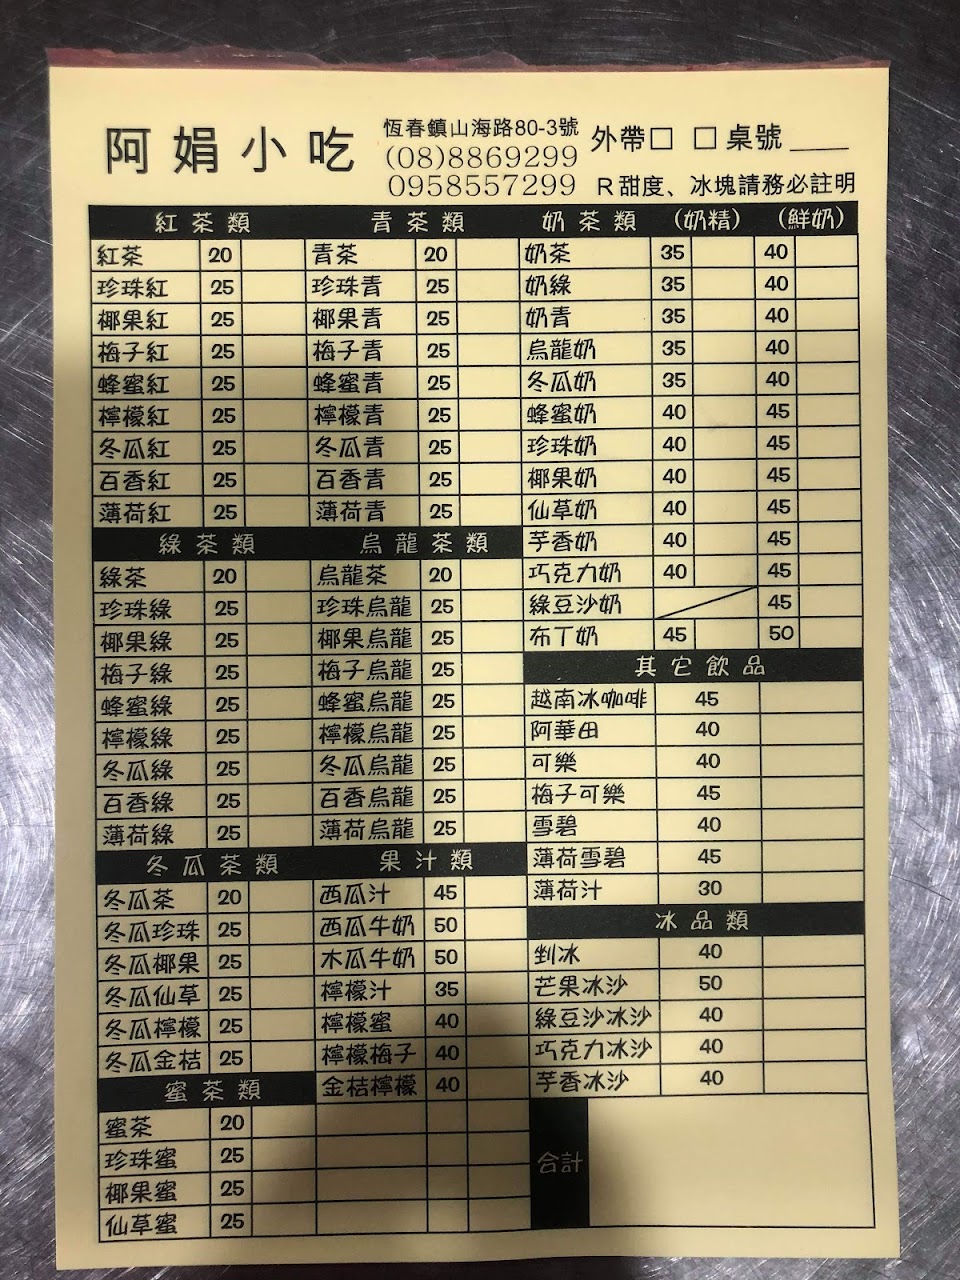 阿娟小吃
恆春鎮山海路80-3號
(08)8869299
0958557299
外帶□ □桌號____
R甜度、冰塊請務必註明
紅茶類
紅茶 20
珍珠紅 25
椰果紅 25
梅子紅 25
蜂蜜紅 25
檸檬紅 25
冬瓜紅 25
百香紅 25
薄荷紅 25
青茶類
青茶 20
珍珠青 25
椰果青 25
梅子青 25
蜂蜜青 25
檸檬青 25
冬瓜青 25
百香青 25
薄荷青 25
綠茶類
綠茶 20
珍珠綠 25
椰果綠 25
梅子綠 25
蜂蜜綠 25
檸檬綠 25
冬瓜綠 25
百香綠 25
薄荷綠 25
烏龍茶類
烏龍茶 20
珍珠烏龍 25
椰果烏龍 25
梅子烏龍 25
蜂蜜烏龍 25
檸檬烏龍 25
冬瓜烏龍 25
百香烏龍 25
薄荷烏龍 25
冬瓜茶類
冬瓜茶 20
冬瓜珍珠 25
冬瓜椰果 25
冬瓜仙草 25
冬瓜檸檬 25
冬瓜金桔 25
蜜茶類
蜜茶 20
珍珠蜜 25
椰果蜜 25
仙草蜜 25
果汁類
西瓜汁 45
西瓜牛奶 50
木瓜牛奶 50
檸檬汁 35
檸檬蜜 40
檸檬梅子 40
金桔檸檬 40
奶茶類 (奶精) (鮮奶)
奶茶 35 40
奶綠 35 40
奶青 35 40
烏龍奶 35 40
冬瓜奶 35 40
蜂蜜奶 40 45
珍珠奶 40 45
椰果奶 40 45
仙草奶 40 45
芋香奶 40 45
巧克力奶 40 45
綠豆沙奶 45
布丁奶 45 50
其它飲品
越南冰咖啡 45
阿華田 40
可樂 40
梅子可樂 45
雪碧 40
薄荷雪碧 45
薄荷汁 30
冰品類
剉冰 40
芒果冰沙 50
綠豆沙冰沙 40
巧克力冰沙 40
芋香冰沙 40
合計